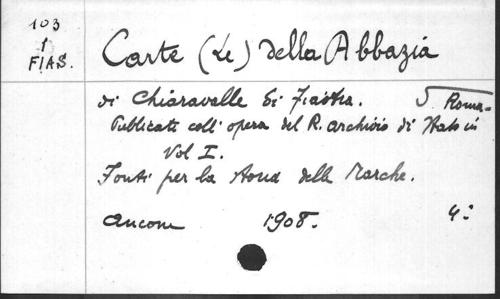 103
1
FIAS.
Carte (Le) della Abbazia
di Chiaravalle di Fiastra.
Publicate coll' opera del R. archivio di Stato in Roma-
Vol I.
Fonti per la storia delle Marche.
Ancona 1908. 4: